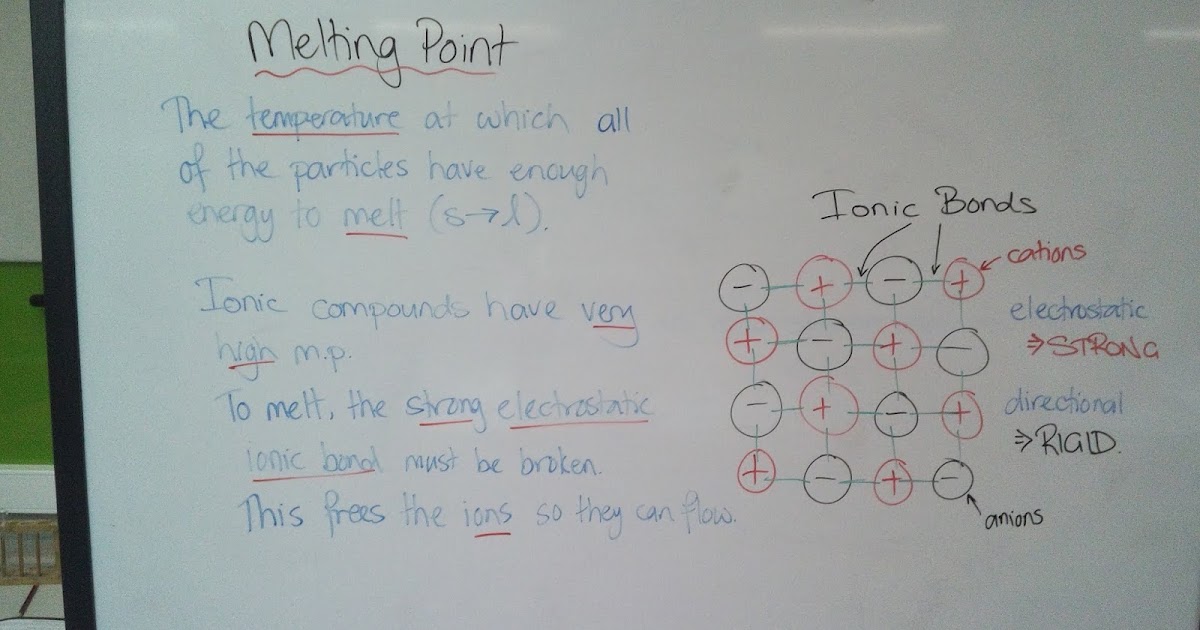 Melting Point
The temperature at which all
of the particles have enough
energy to melt (s→l).
Ionic compounds have very
high m.p.
To melt, the strong electrostatic
ionic bond must be broken.
This frees the ions so they can flow.
Ionic Bonds
- + - +
cations
+ - + -
- + - +
+ - + -
electrostatic
⇒ STRONG
directional
⇒ RIGID.
anions